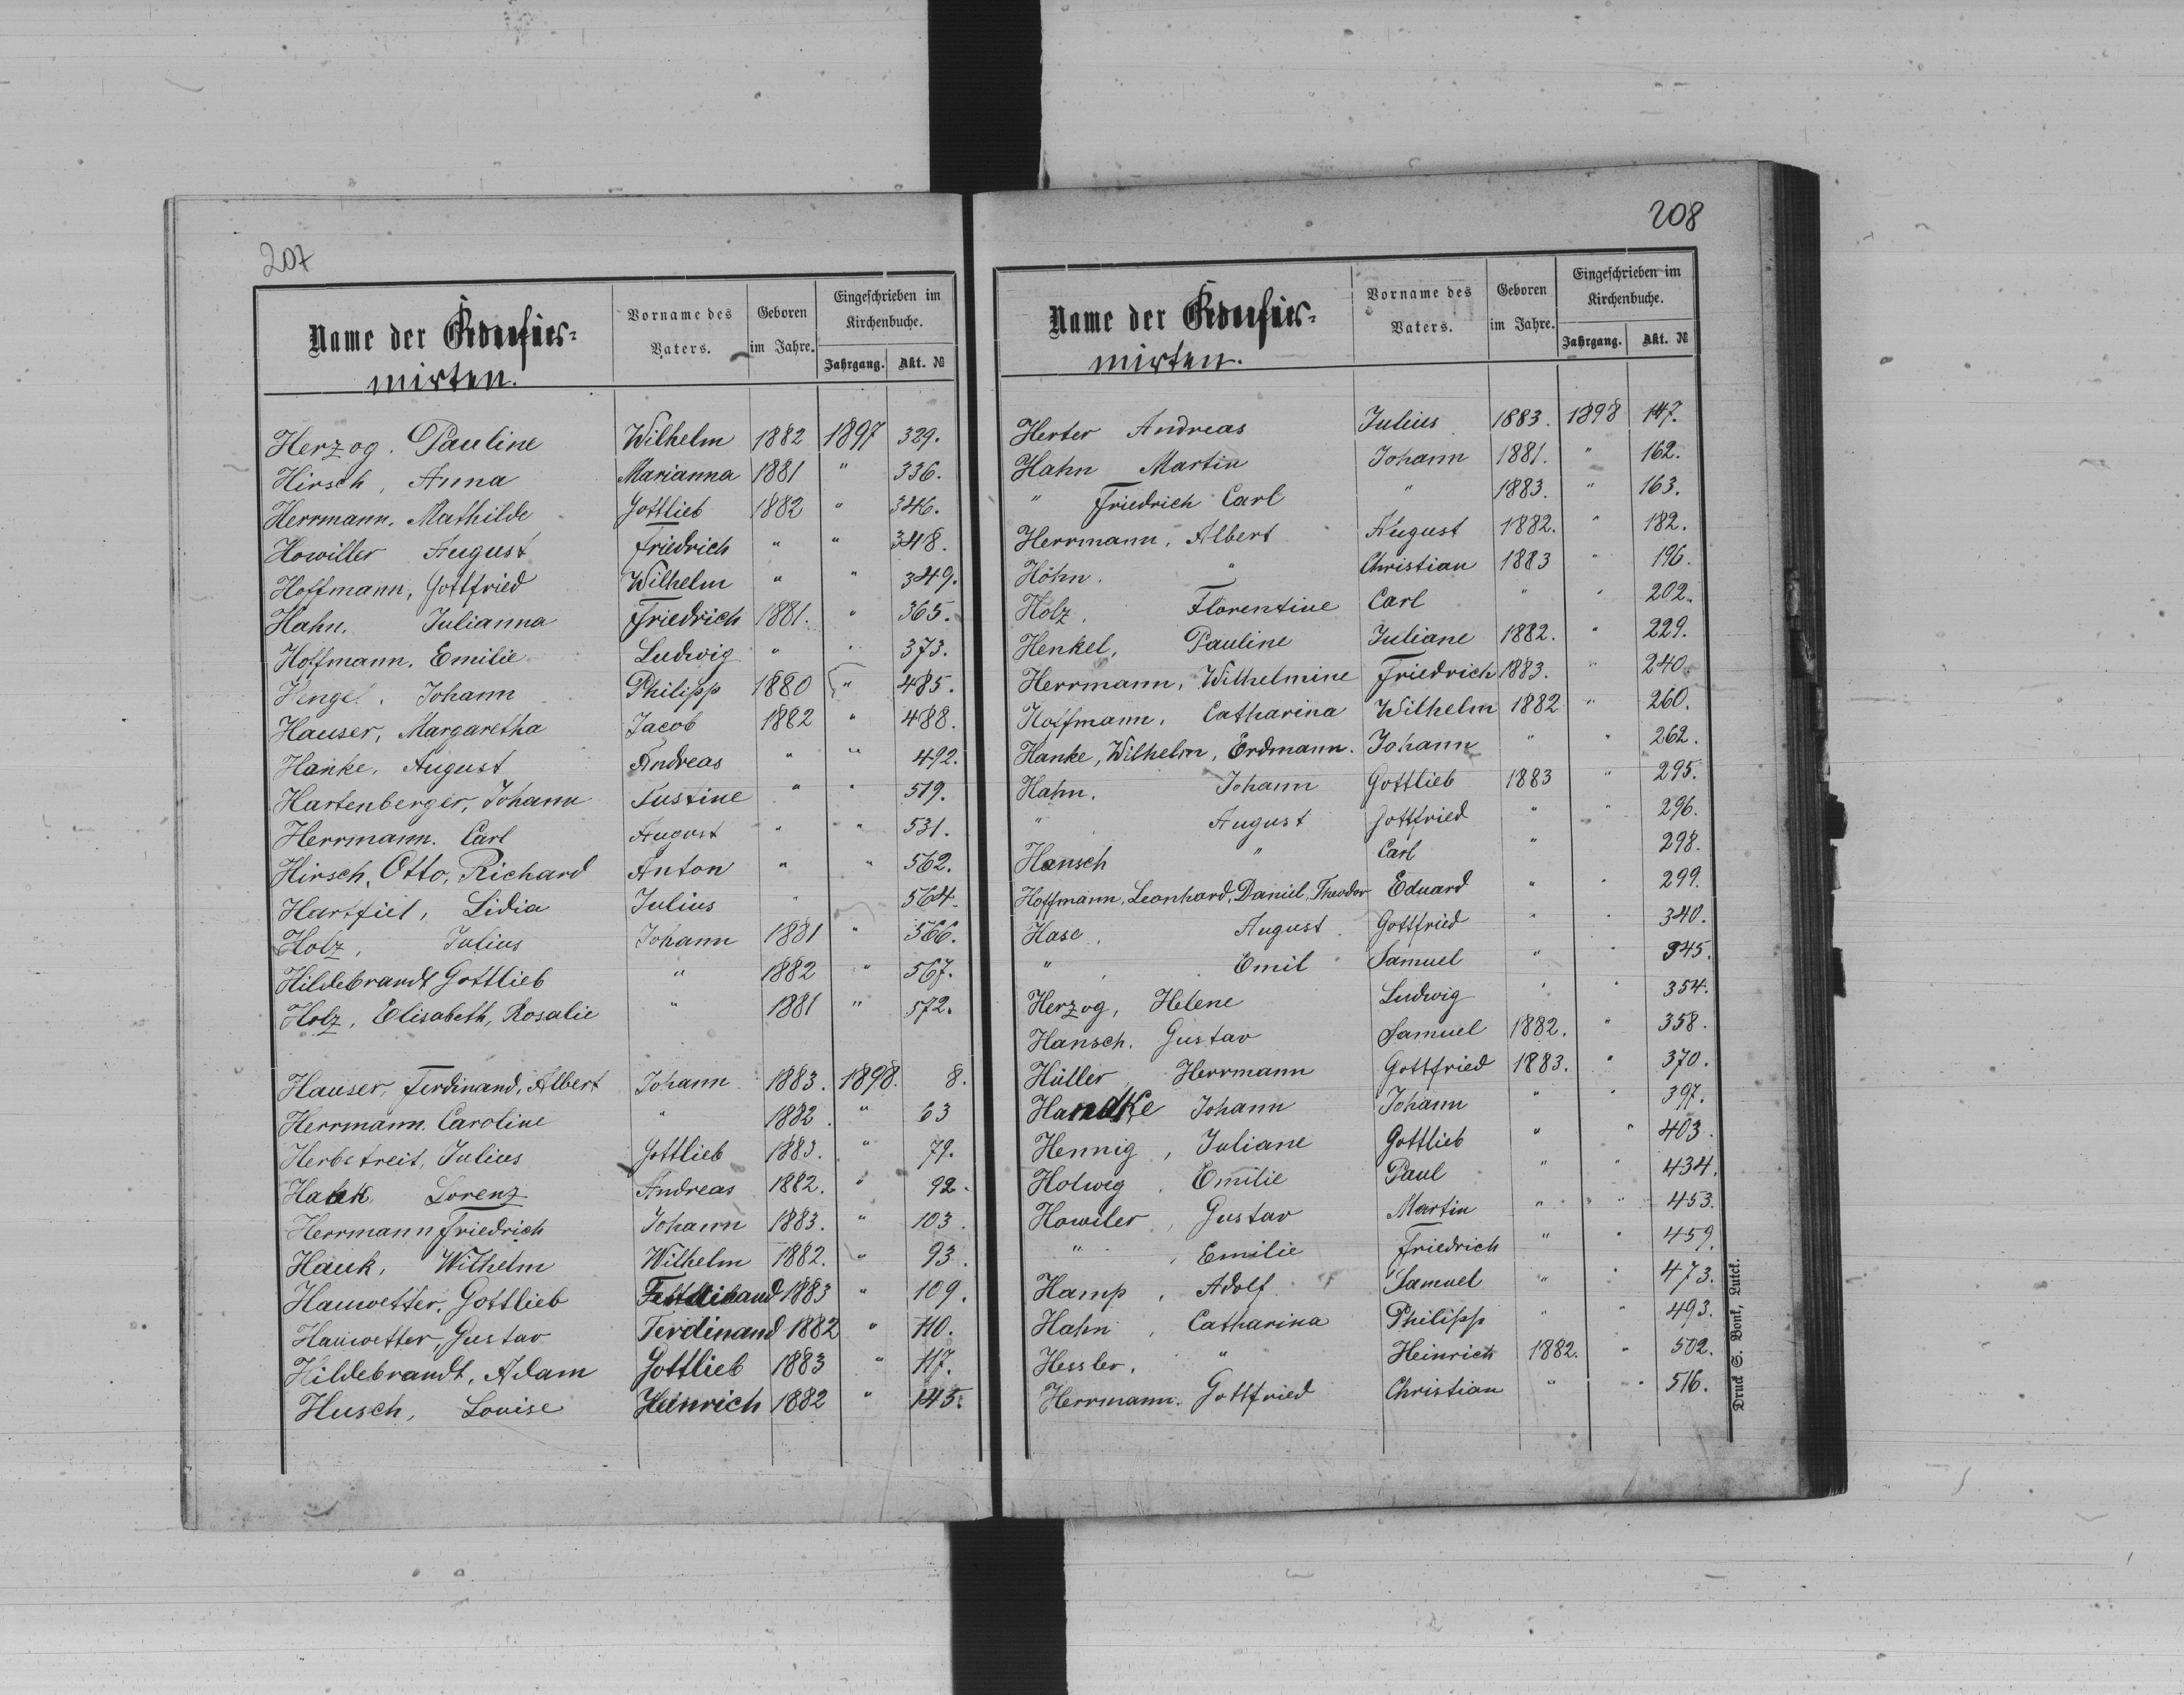 207
Name der Confir-
mirten.
Vorname des Vaters.
Geboren im Jahre.
Eingeschrieben im Kirchenbuche.
Jahrgang. Akt. №
Herzog. Pauline Wilhelm 1882 1897 329.
Hirsch, Anna Marianna 1881 " 336.
Herrmann. Mathilde Gottlieb 1882 " 346.
Howiller August Friedrich " " 348.
Hoffmann, Gottfried Wilhelm " " 349.
Hahn. Julianna Friedrich 1881. " 365.
Hoffmann. Emilie Ludwig " " 373.
Hengel. Johann Philipp 1880 " 485.
Hauser, Margaretha Jacob 1882 " 488.
Hanke, August Andreas " " 492.
Hartenberger, Johann Justine " " 519.
Herrmann. Carl August " " 531.
Hirsch, Otto, Richard Anton " " 562.
Hartfiel, Lidia Julius " 564.
Holz, Julius Johann 1881 " 566.
Hildebrandt Gottlieb " 1882 " 567.
Holz, Elisabeth, Rosalie " 1881 " 572.
Hauser, Ferdinand, Albert Johann 1883. 1898. 8.
Herrmann. Caroline " 1882. " 63
Herbstreit, Julius Gottlieb 1883. " 79.
Lorenz Andreas 1882. " 92.
Herrmann Friedrich Johann 1883. " 103.
Hauk, Wilhelm Wilhelm 1882. " 93.
Hauwetter, Gottlieb 1883 " 109.
Hauwetter, Gustav Ferdinand 1882 " 110.
Hildebrandt, Adam Gottlieb 1883 " 117.
Husch, Louise Heinrich 1882 " 145.
208
Name der Confir-
mirten.
Vorname des Vaters.
Geboren im Jahre.
Eingeschrieben im Kirchenbuche.
Jahrgang. Akt. №
Herter Andreas Julius 1883. 1898 147.
Hahn Martin Johann 1881. " 162.
" Friedrich Carl " 1883. " 163.
Herrmann, Albert August 1882. " 182.
Höhn. " Christian 1883 " 196.
Holz, Florentine Carl " " 202.
Henkel, Pauline Juliane 1882. " 229.
Herrmann, Wilhelmine Friedrich 1883. " 240.
Hoffmann, Catharina Wilhelm 1882 " 260.
Hanke, Wilhelm, Erdmann. Johann " " 262.
Hahn, Johann Gottlieb 1883 " 295.
" August Gottfried " " 296.
Hansch " Carl " 298.
Hoffmann, Leonhard, Daniel, Theodor Eduard " " 299.
Hase, August. Gottfried " " 340.
" , Emil Samuel " " 345.
Herzog, Helene Ludwig " " 354.
Hansch. Gustav Samuel 1882. " 358.
Hüller, Herrmann Gottfried 1883. " 370.
Handke Johann Johann " " 397.
Hennig, Juliane Gottlieb " " 403.
Holweg, Emilie Paul " " 434.
Howiler, Gustav Martin " " 453.
" , Emilie Friedrich " " 459.
Hamp, Adolf Samuel " " 473.
Hahn, Catharina Philipp " " 493.
Hessler, " Heinrich 1882. " 502.
Herrmann. Gottfried Christian " " 516.
Druck S. Bonk, Lutck.